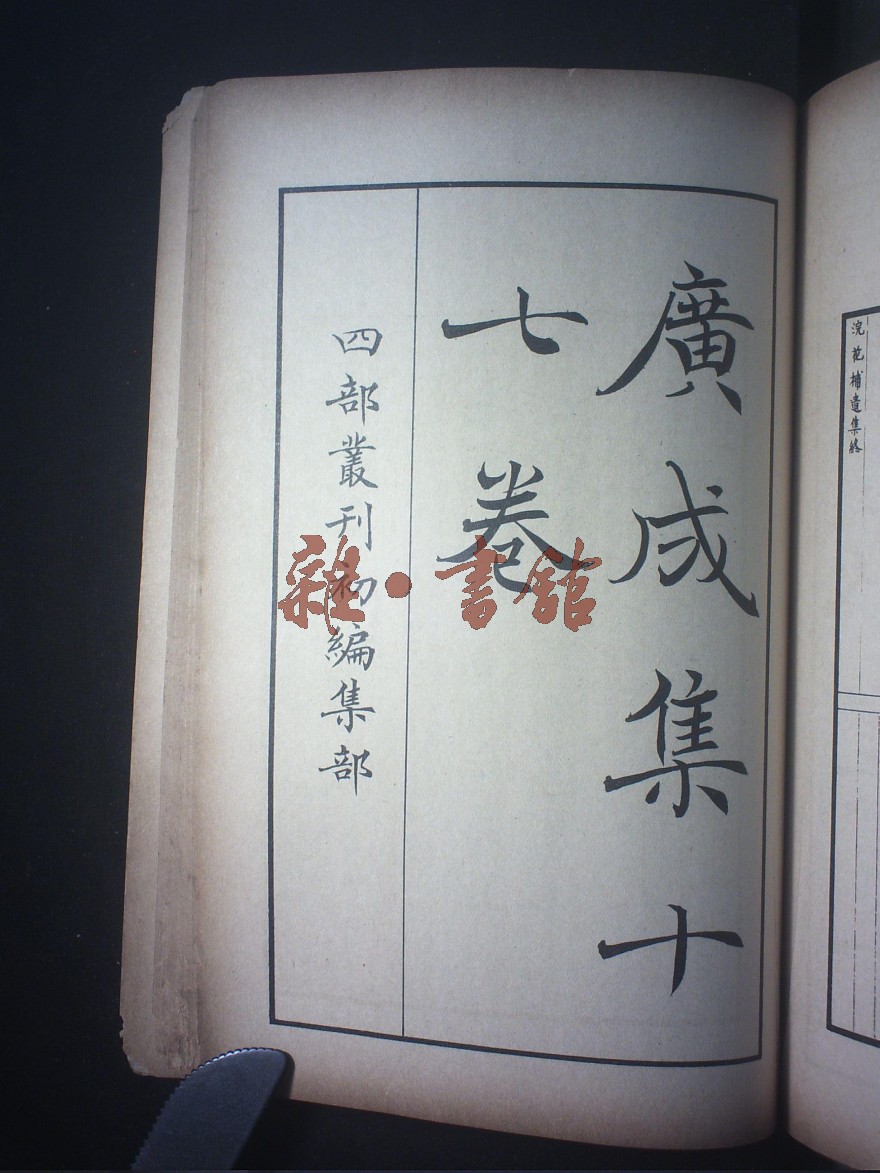 浣花補遺集終
廣成集十
七卷
四部叢刊初編集部
雜·書館